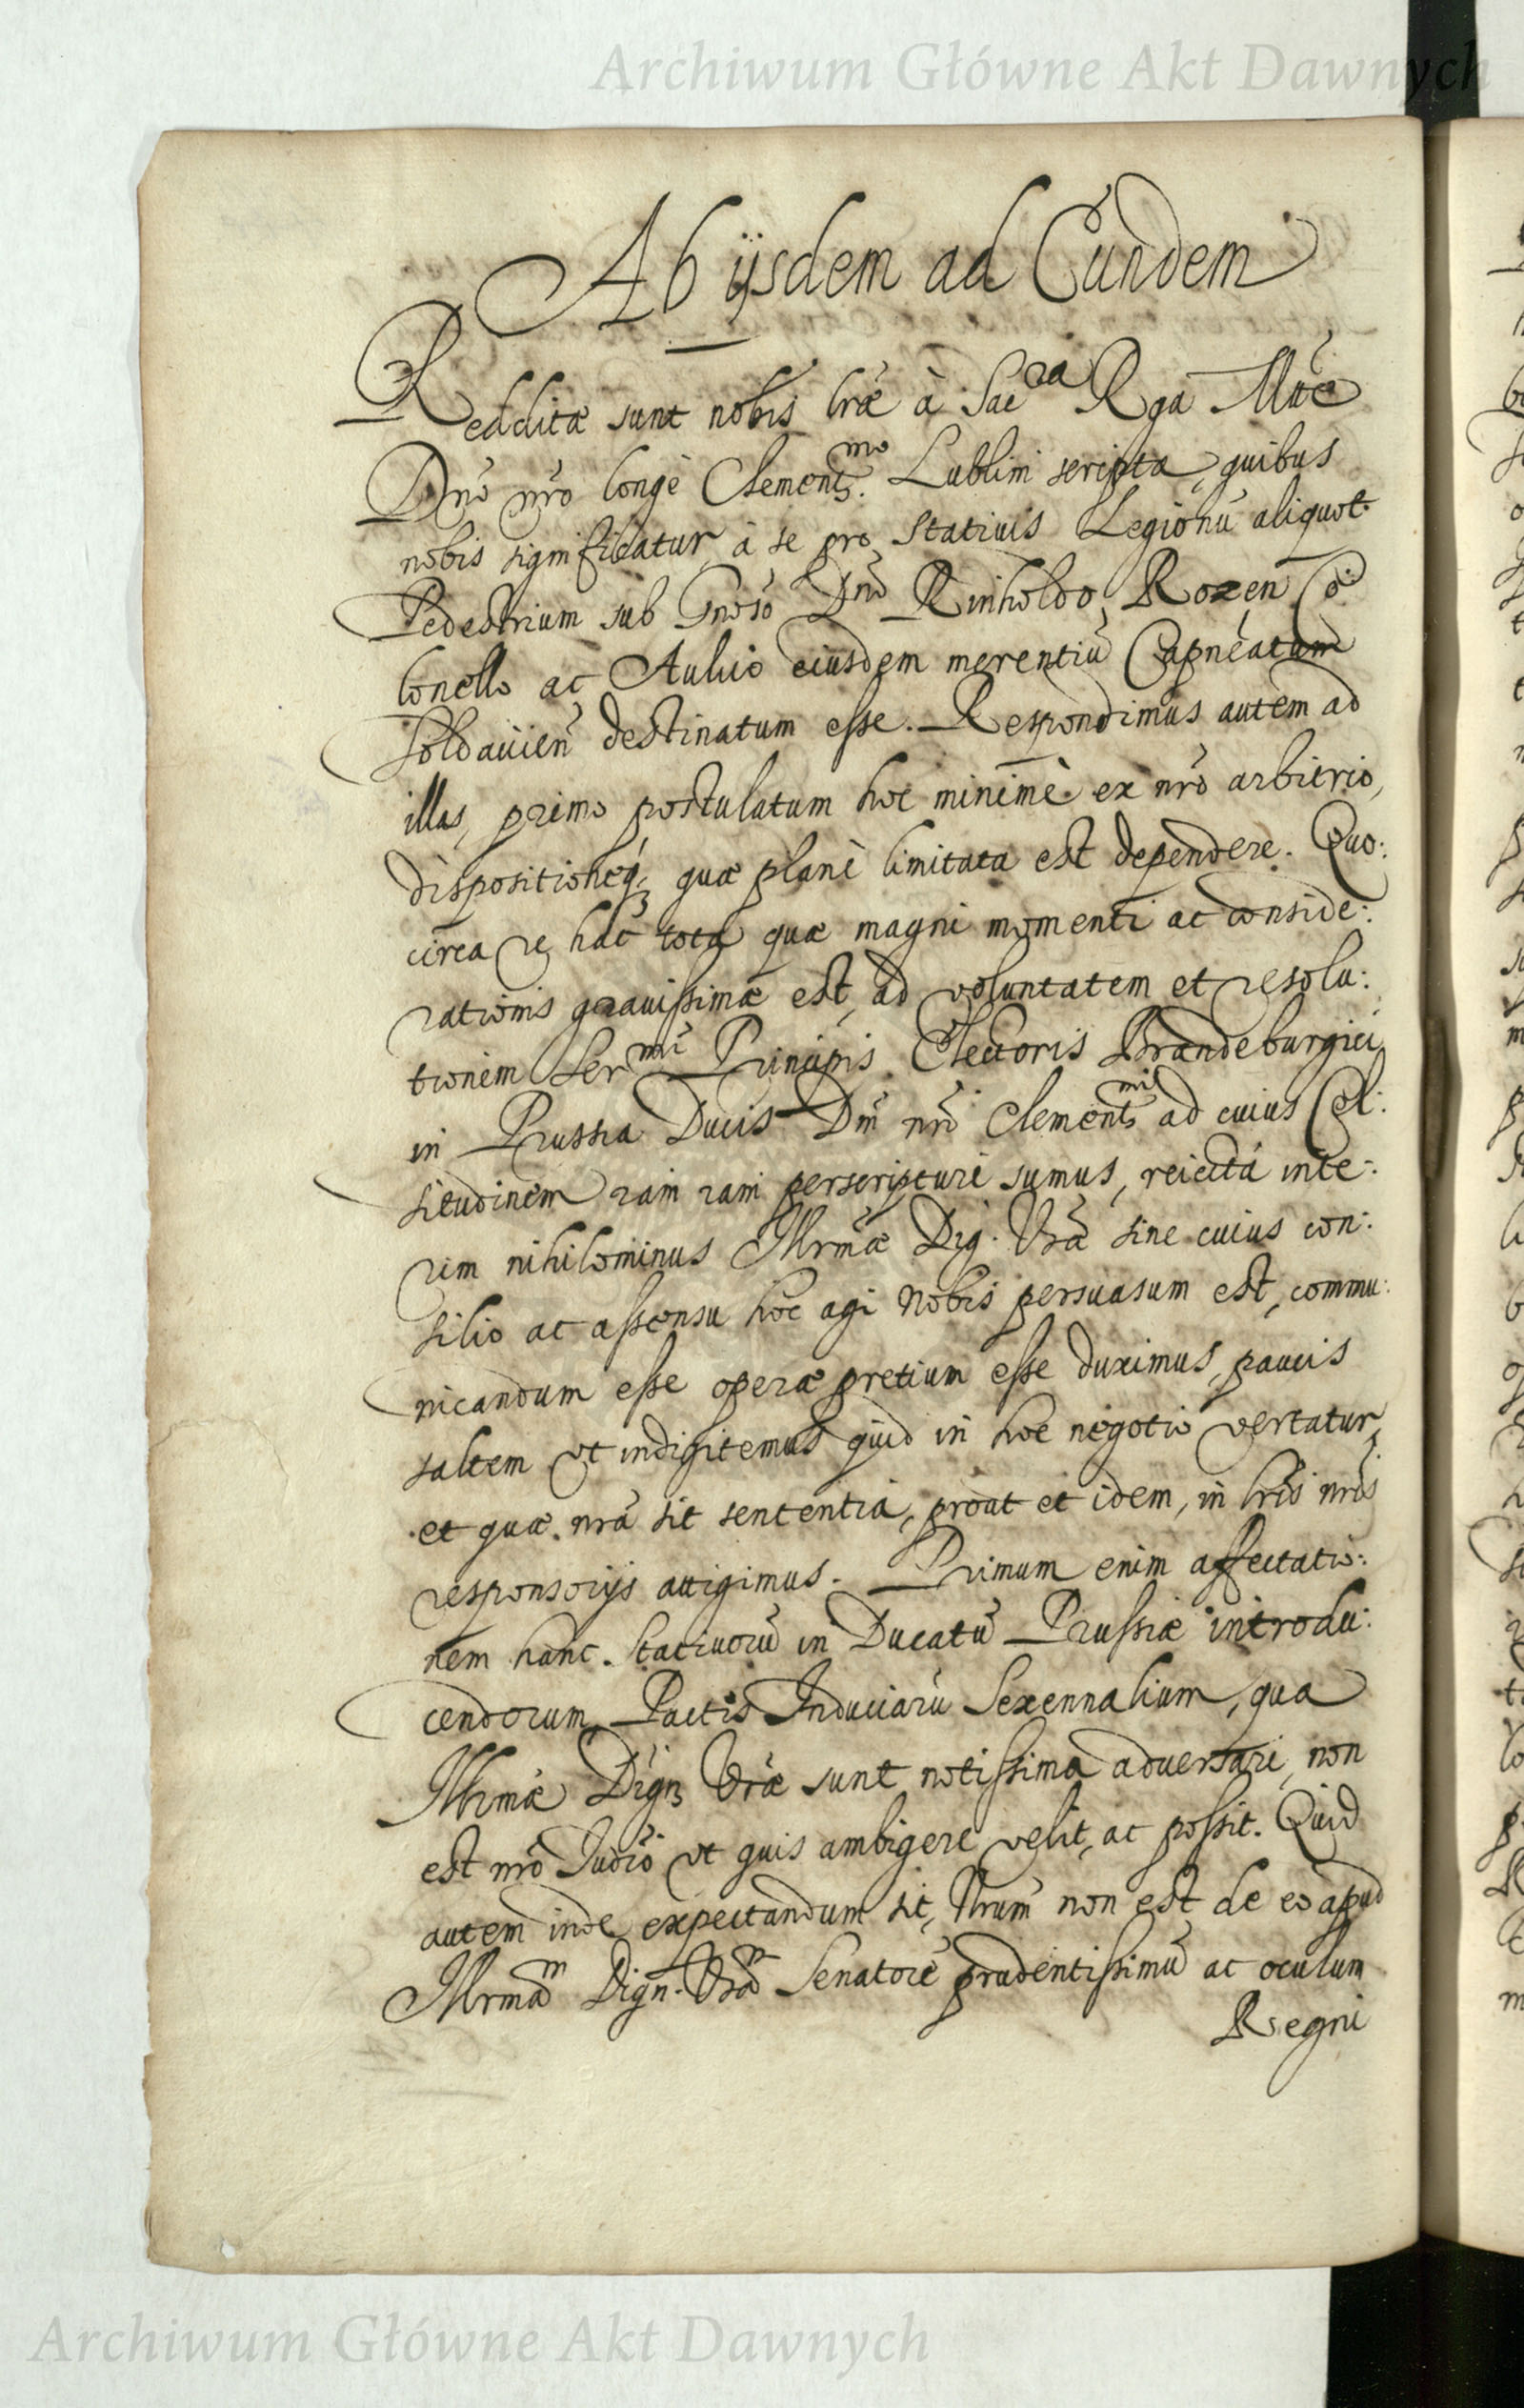 Archiwum Główne Akt Dawnych
Ab ijsdem ad Eundem
Redditæ sunt nobis lræ à Sac̃ra Rga Mtẽ
Dno nro longè Clementmo. Lublini scripta, quibus
nobis significatur à se pro Stativis Legionũ aliquot
Pedestrium sub Gnoso Dno Rinholdo Rozen Co:
lonello ac Auluio eiusdem merentiũ Capneatum
Soldauien destinatum esse. Respondimus autem ad
illas, primo postulatum hoc minimè ex nrõ arbitrio,
dispositioneq; quæ planè limitata est dependere. Quo:
circa rẽ hãc totã quæ magni momenti ac conside:
rationis grauissimæ est, ad voluntatem et resolu:
tionem Sermi Principis Electoris Brandeburgici
in Prussia Ducis Dni nri Clementmi ad cuius Cel:
situdinem iam iam perscripturi sumus, reiectã inte:
rim nihilominus Illrmæ Dig. Vræ sine cuius con:
silio ac assensu hoc agi nobis persuasum est, commu:
nicandum esse operæ pretium esse duximus, paucis
saltem vt indigitemus quid in hoc negotio vertatur,
et quæ nrã sit sententia, prout et idem, in lris nris
responsorijs attigimus. Primum enim affectatio:
nem hanc Statiuorũ in Ducatũ Prussiæ introdu:
cendorum Pactis Induciarũ Sexennalium, qua
Illrmæ Dign. Vræ sunt notissima adversari, non
est nrõ Judicio vt quis ambigere velit, ac possit. Quid
autem inde expectandum sit, Nrum non est de eo apud
Illrmãm Dign. Vrãm Senatorẽ prudentissimũ ac oculum
Regni
Archiwum Główne Akt Dawnych